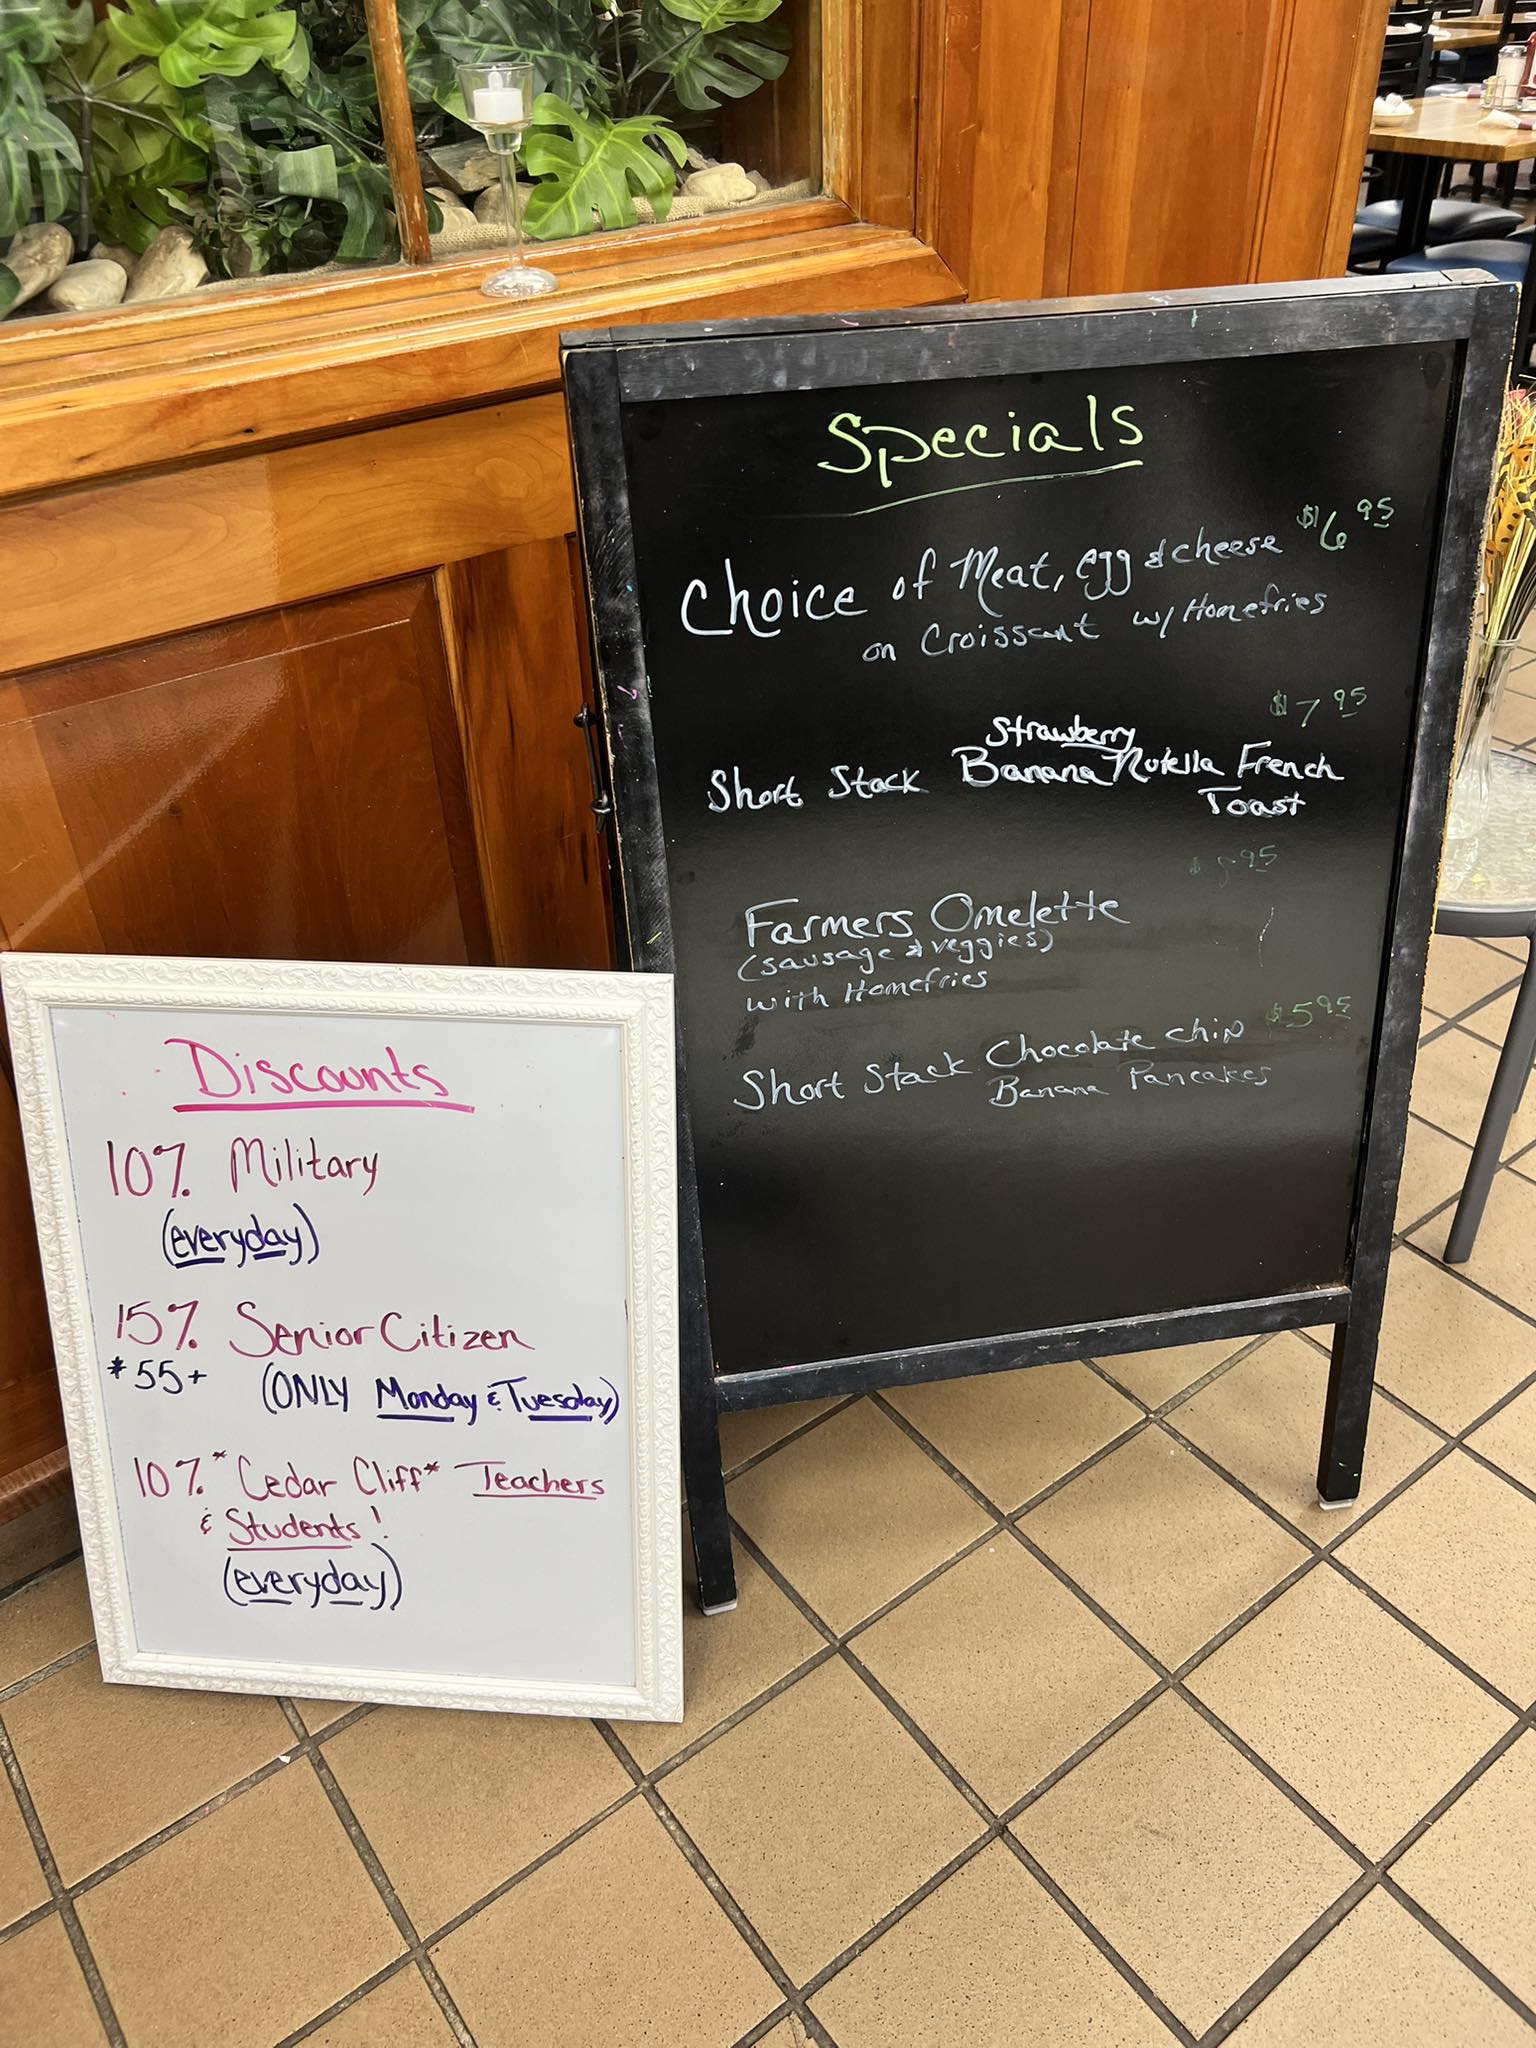 Specials
Choice of Meat, Egg & cheese $6 95
on Croissant w/ Homefries
$7 95
Strawberry
Short Stack Banana Nutella French
Toast
95
Farmers Omelette
(sausage & veggies)
with Homefries
Short Stack Chocolate chip $5 95
Banana Pancakes
Discounts
10% Military
(everyday)
15% Senior Citizen
*55+ (ONLY Monday & Tuesday)
10% *Cedar Cliff* Teachers
& Students!
(everyday)